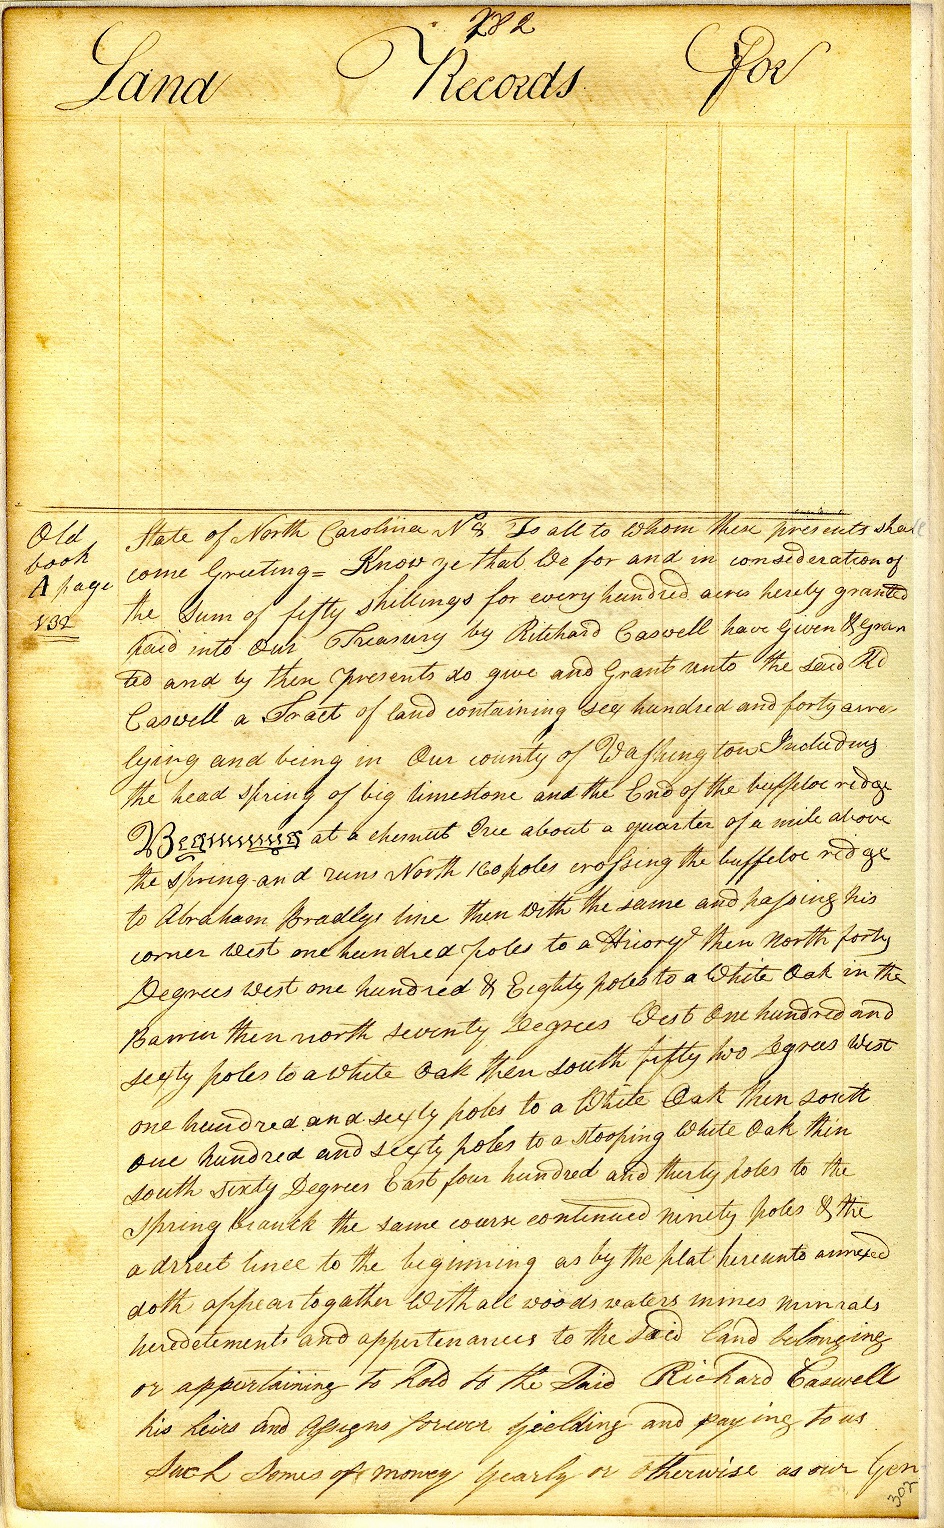 282
Land Records For
Old
book
A page
132
State of North Carolina No 8 To all to whom these presents shall
come Greeting = Know ye that We for and in consideration of
the Sum of fifty shillings for every hundred acres hereby granted
paid into Our Treasury by Ritchard Caswell have Given & Gran
ted and by these presents do give and Grant unto the said Rd
Caswell a Tract of land containing sex hundred and forty acres
lying and being in Our county of Washington Including
the head spring of big limestone and the End of the buffeloe ridge
Beginning at a chesnut Tree about a quarter of a mile above
the spring and runs North 160 poles crossing the buffeloe ridge
to Abraham Bradlys line then with the same and passing his
corner west one hundred poles to a then north forty
Degrees west one hundred & Eighty poles to a White Oak in the
Barrin then north seventy Degrees West One hundred and
sexty poles to a White Oak then south fifty two Degrees West
one hundred and sexty poles to a White Oak then south
one hundred and sexty poles to a stooping White Oak then
south sixty Degrees East four hundred and thirty poles to the
Spring branch the same course continued ninety poles & the
a drect linee to the beginning as by the plat hereunto annexed
doth appear togather With all woods waters mines minrals
heredetements and appertenances to the said land belonging
or appertaining to hold to the Said Richard Caswell
his heirs and Assigns forever yielding and paying to us
Such Somes of money yearly or otherwise as our Gen
302